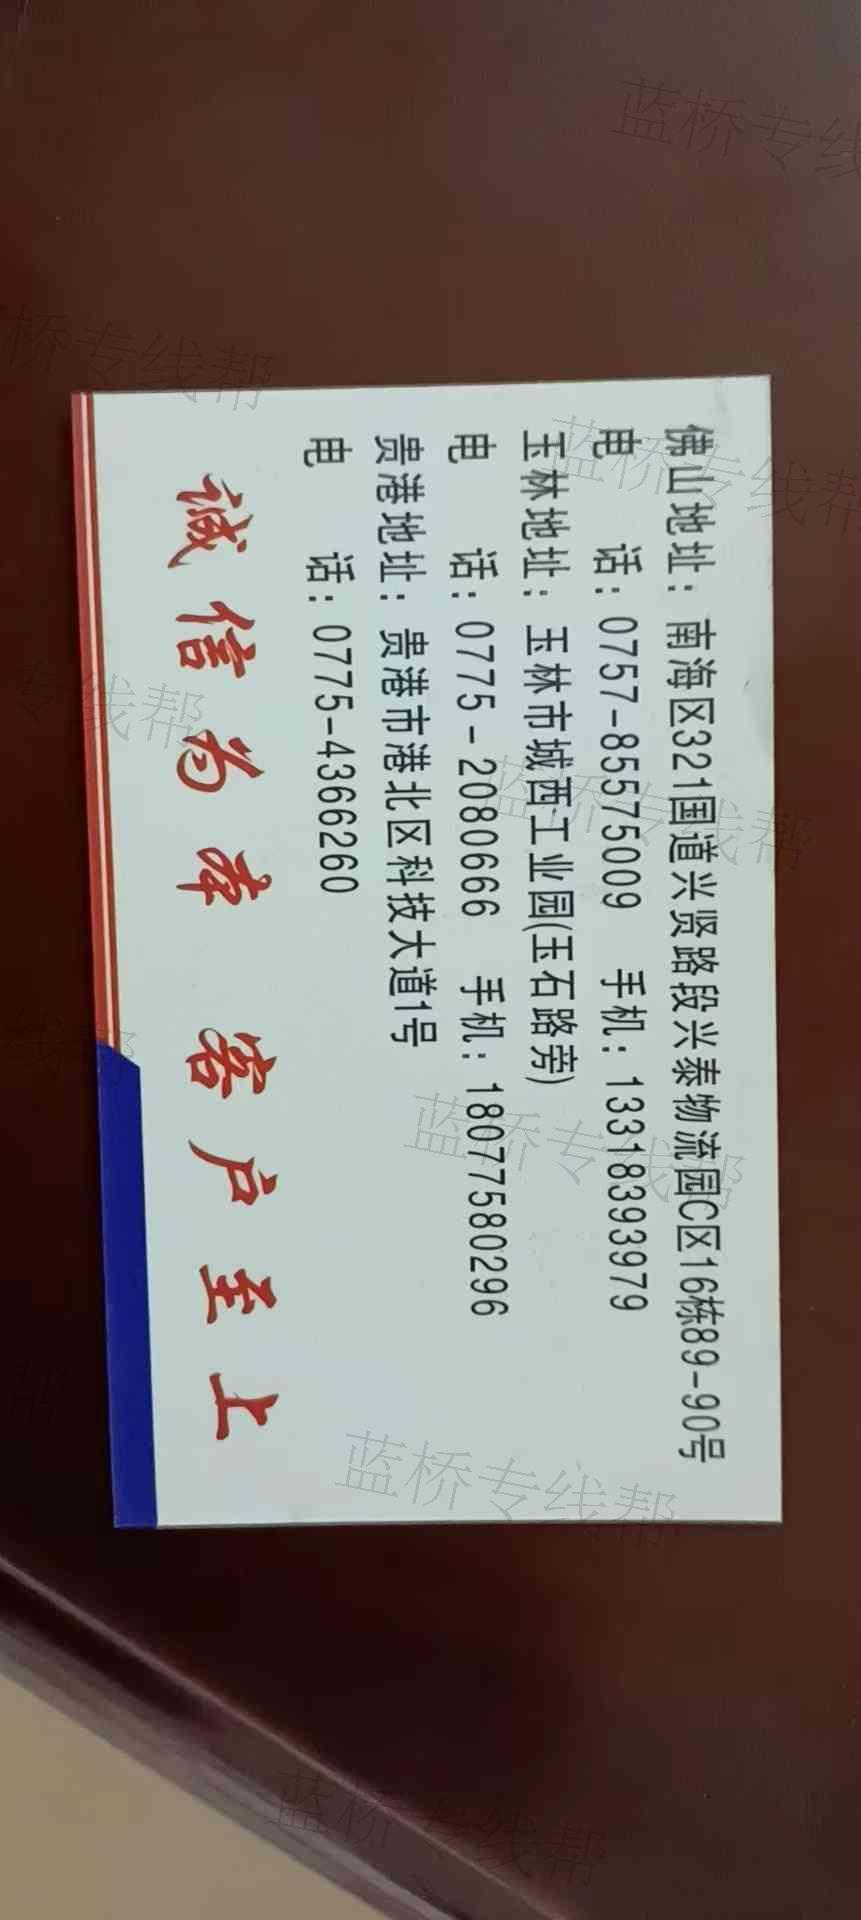 佛山地址：南海区321国道兴贤路段兴泰物流园C区16栋89-90号
电 话：0757-85575009 手机：13318393979
玉林地址：玉林市城西工业园(玉石路旁)
电 话：0775-2080666 手机：18077580296
贵港地址：贵港市港北区科技大道1号
电 话：0775-4366260
诚信为本 客户至上
蓝桥专线帮